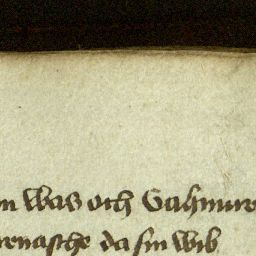 n was och Gahmure
renasche da sin wib